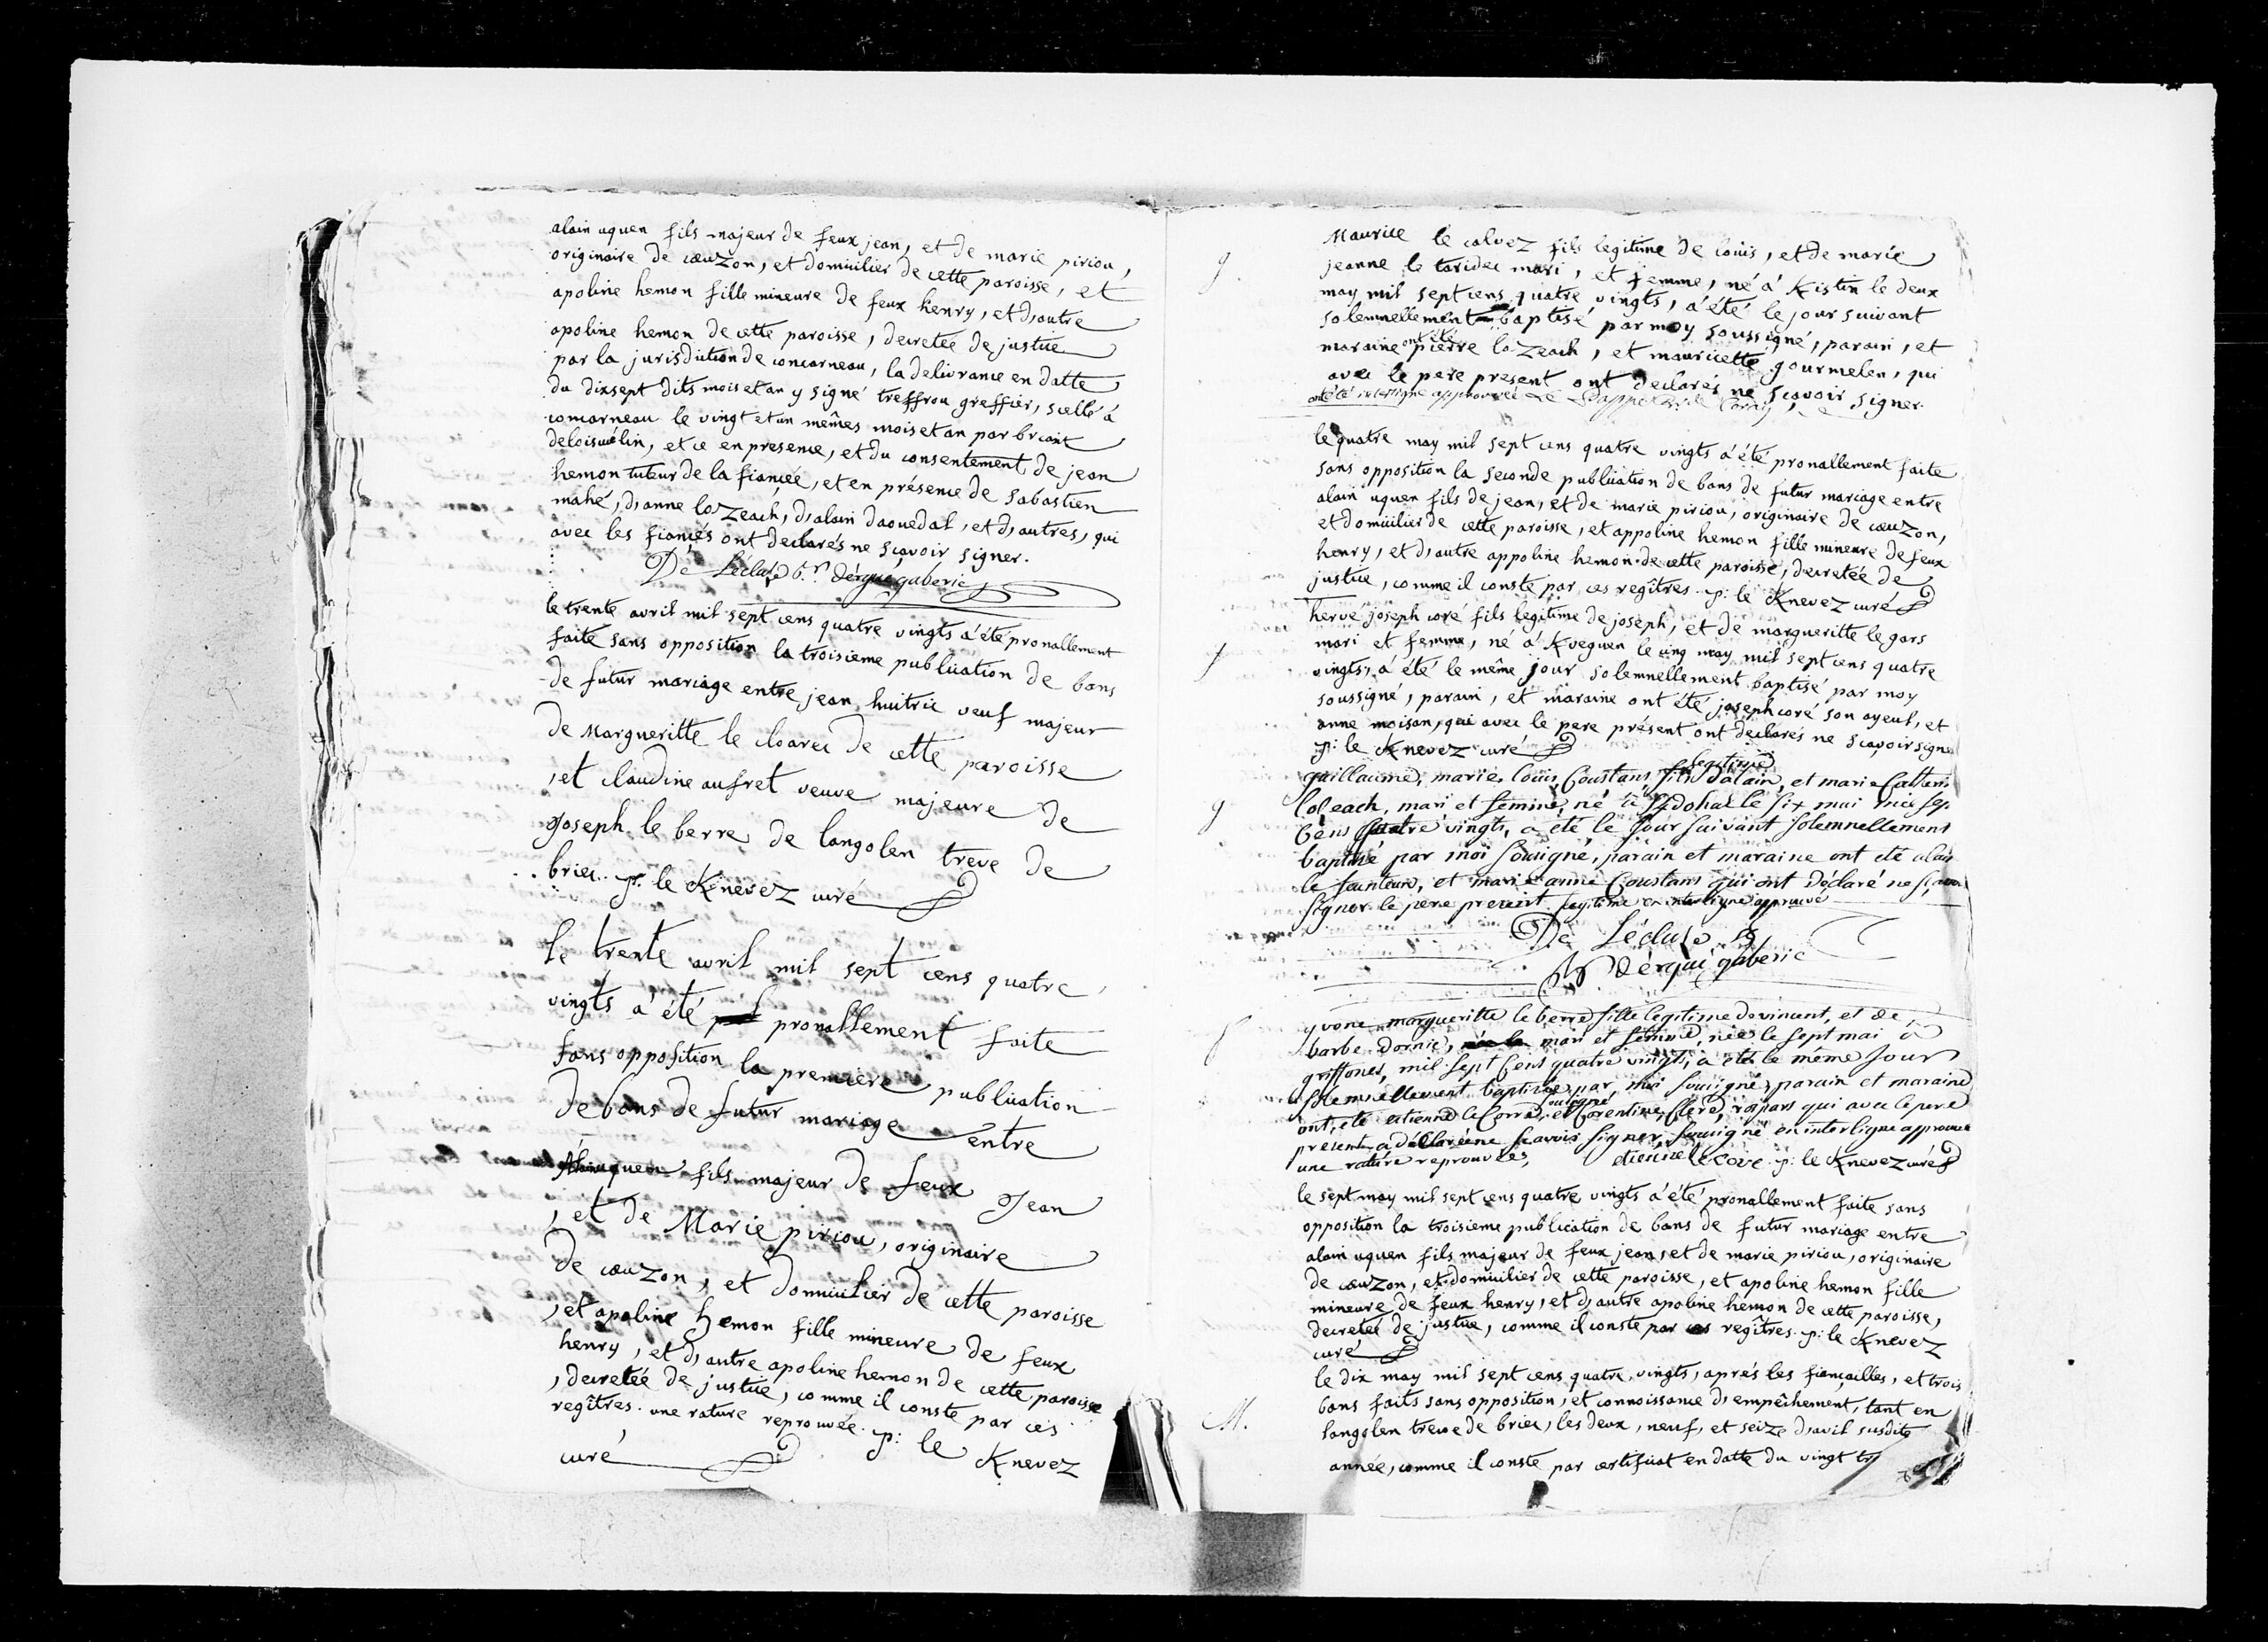 alain uguen fils majeur de feux jean, et de marie piriou,
originaire de cauzon, et domicilier de cette paroisse, et
apoline hemon fille mineure de feux henry, et d'autre
apoline hemon de cette paroisse, decretée de justice
par la jurisdiction de concarneau, la delivrance en datte
du dixsept dits mois et an y signé treffrou greffier, scellé à
concarneau le vingt et un mêmes mois et an par briant
et ce en presence, et du consentement de jean
hemon tuteur de la fiancée, et en présence de sabastien
mahé, d'anne lozeach, d'alain daouedal, et d'autres, qui
avec les fiancés ont declarés ne sçavoir signer.
De Lécluse r.r dérguégaberic
le trente avril mil sept cens quatre vingts a été pronallement
faite sans opposition la troisieme publication de bans
de futur mariage entre jean huitric veuf majeur
de Margueritte le cloarec de cette paroisse
, et claudine aufret veuve majeure de
Joseph le berre de langolen treve de
briec. p: le Knevez curé
le trente avril mil sept cens quatre
vingts a été pronallement faite
sans opposition la premiere publication
de bans de futur mariage entre
Alain uguen fils majeur de feux Jean
, et de Marie piriou, originaire
de cauzon, et domicilier de cette paroisse
, et apoline hemon fille mineure de feux
henry, et d'autre apoline hemon de cette paroisse
, decretée de justice, comme il conste par ces
regîtres. une rature reprouvée. p: le Knevez
curé
Maurice le calvez fils legitime de loüis, et de marie
g. jeanne le taridec mari, et femme, né a Kistin le deux
may mil sept cens quatre vingts, a été le jour suivant
solemnellement baptisé par moy soussigné, parain, et
maraine ont été pierre lozeach, et mauricette gourmelen, qui
avec le pere present ont declarés ne sçavoir signer.
ont été interligne approuvé
le quatre may mil sept cens quatre vingts a été pronallement faite
sans opposition la seconde publication de bans de futur mariage entre
alain uguen fils de jean, et de marie piriou, originaire de cauzon,
et domicilier de cette paroisse, et appoline hemon fille mineure de feux
henry, et d'autre appoline hemon de cette paroisse, decretée de
justice, comme il conste par ces regîtres. p: le Knevez curé
herve joseph coré fils legitime de joseph, et de margueritte le gars
mari et femme, né a Kveguen le cinq may mil sept cens quatre
vingts, a été le même jour solemnellement baptisé par moy
soussigné, parain, et maraine ont été joseph coré son ayeul, et
anne moisan, qui avec le pere présent ont declarés ne sçavoir signer
p: le Knevez curé
guillaume, marie, louis Coustans fils legitime d'alain, et marie Catherine
g loZeach, mari et femme, né a le six mai mil sept
Cens quatre vingts, a été le jour suivant solemnellement
baptisé par moi sousigné, parain et maraine ont été alain
le et marie anne Coustans qui ont déclaré ne sçavoir
signer le pere present legitime en interligne approuvé
De Lécluse
r dérgué gaberic
yvone margueritte le berre fille legitime de vincent, et de
barbe dornic, mari et femme, née le sept mai a
griffones, mil sept cens quatre vingts, a été le même jour
solemnellement baptisée par moi sousigné, parain et maraine
ont été etienne le Corre sousigné, et Corentine rospars qui avec le pere
present a déclaré ne scavoir signer, sousigné en interligne approuvé
une rature reprouvée, etienne le core p: le Knevez curé
le sept may mil sept cens quatre vingts a été pronallement faite sans
opposition la troisieme publication de bans de futur mariage entre
alain uguen fils majeur de feux jean, et de marie piriou, originaire
de cauzon, et domicilier de cette paroisse, et apoline hemon fille
mineure de feux henry, et d'autre apoline hemon de cette paroisse,
decretée de justice, comme il conste par ces regîtres. p: le Knevez
curé
le dix may mil sept cens quatre vingts, aprés les fiançailles, et trois
M. bans faits sans opposition, et connoissance d'empêchement, tant en
langolen treve de briec, les deux, neuf, et seize d'avril susdite
année, comme il conste par certificat en datte du vingt